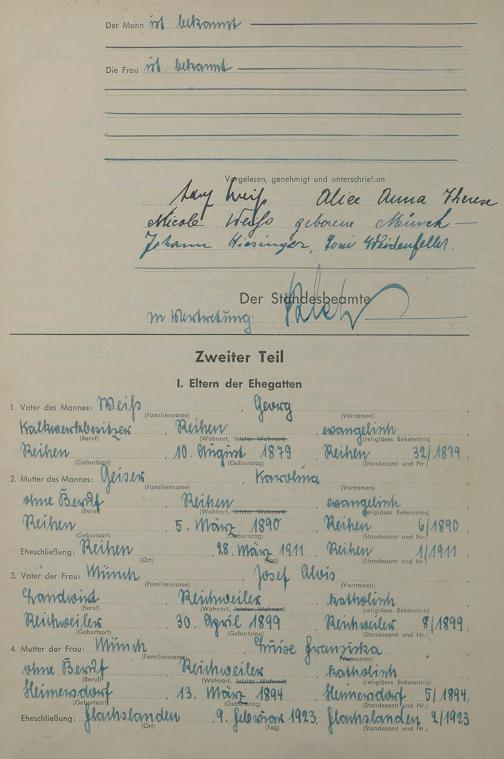 Der Mann ist bekannt
Die Frau ist bekannt
Vorgelesen, genehmigt und unterschrieben
Weiß Alice Anna Therese
Nicole Weiß geborene Münch
Johann Giesinger, Toni Weidenfeller.
Der Standesbeamte
In Vertretung:
Zweiter Teil
I. Eltern der Ehegatten
1. Vater des Mannes: Weiß, Georg
(Familienname) (Vornamen)
Kalkwerksbesitzer, Reihen, evangelisch
(Beruf) (Wohnort, letzter Wohnort) (religiöses Bekenntnis)
Reihen, 10. August 1879, Reihen 32/1879
(Geburtsort) (Geburtstag) (Standesamt und Nr.)
2. Mutter des Mannes: Geiser, Karolina
(Familienname) (Vornamen)
ohne Beruf, Reihen, evangelisch
(Beruf) (Wohnort, letzter Wohnort) (religiöses Bekenntnis)
Reihen, 5. März 1890, Reihen 6/1890
(Geburtsort) (Geburtstag) (Standesamt und Nr.)
Eheschließung: Reihen, 28. März 1911, Reihen 1/1911
(Ort) (Tag) (Standesamt und Nr.)
3. Vater der Frau: Münch, Josef Alois
(Familienname) (Vornamen)
Landwirt, Reichweiler, katholisch
(Beruf) (Wohnort, letzter Wohnort) (religiöses Bekenntnis)
Reichweiler, 30. April 1899, Reichweiler 8/1899
(Geburtsort) (Geburtstag) (Standesamt und Nr.)
4. Mutter der Frau: Münch, Luise Franziska
(Familienname) (Vornamen)
ohne Beruf, Reichweiler, katholisch
(Beruf) (Wohnort, letzter Wohnort) (religiöses Bekenntnis)
Heimersdorf, 13. März 1894, Heimersdorf 5/1894
(Geburtsort) (Geburtstag) (Standesamt und Nr.)
Eheschließung: Flachslanden, 9. Februar 1923, Flachslanden 2/1923
(Ort) (Tag) (Standesamt und Nr.)